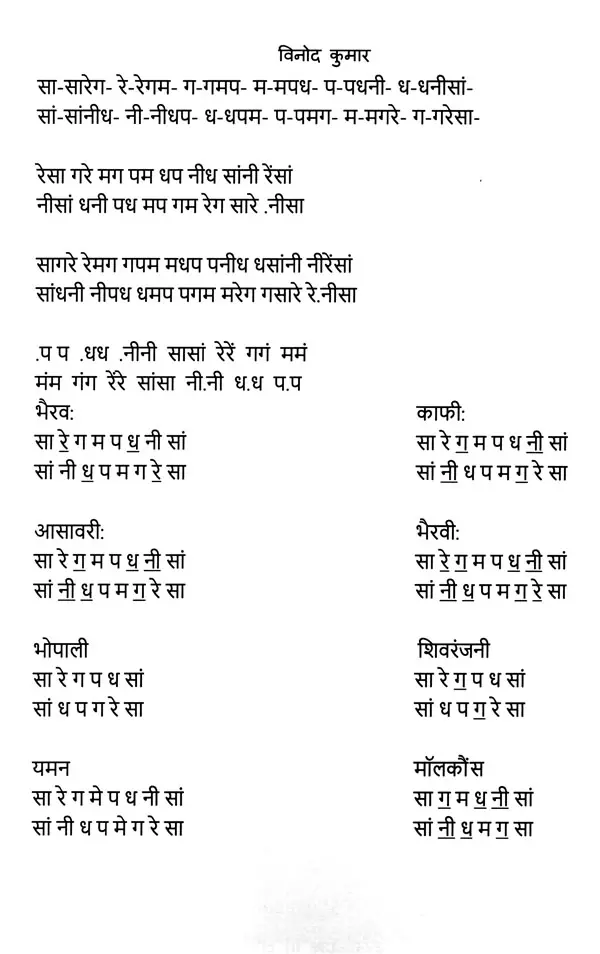 विनोद कुमार
सा-सारेग- रे-रेगम- ग-गमप- म-मपध- प-पधनी- ध-धनीसां-
सां-सांनीध- नी-नीधप- ध-धपम- प-पमग- म-मगरे- ग-गरेसा-
रेसा गरे मग पम धप नीध सांनी रेंसां
नीसां धनी पध मप गम रेग सारे .नीसा
सागरे रेमग गपम मधप पनीध धसांनी नीरेंसां
सांधनी नीपध धमप पगम मरेग गसारे रे.नीसा
.प प .धध .नीनी सासां रेरें गगं ममं
मंम गंग रेंरे सांसा नी.नी ध.ध प.प
भैरव:
सा रे॒ ग म प ध॒ नी सां
सां नी ध॒ प म ग रे॒ सा
काफी:
सा रे ग॒ म प ध नी॒ सां
सां नी॒ ध प म ग॒ रे सा
आसावरी:
सा रे ग॒ म प ध॒ नी॒ सां
सां नी॒ ध॒ प म ग॒ रे सा
भैरवी:
सा रे॒ ग॒ म प ध॒ नी॒ सां
सां नी॒ ध॒ प म ग॒ रे॒ सा
भोपाली
सा रे ग प ध सां
सां ध प ग रे सा
शिवरंजनी
सा रे ग॒ प ध सां
सां ध प ग॒ रे सा
यमन
सा रे ग मे प ध नी सां
सां नी ध प मे ग रे सा
मॉलकौंस
सा ग॒ म ध॒ नी॒ सां
सां नी॒ ध॒ म ग॒ सा